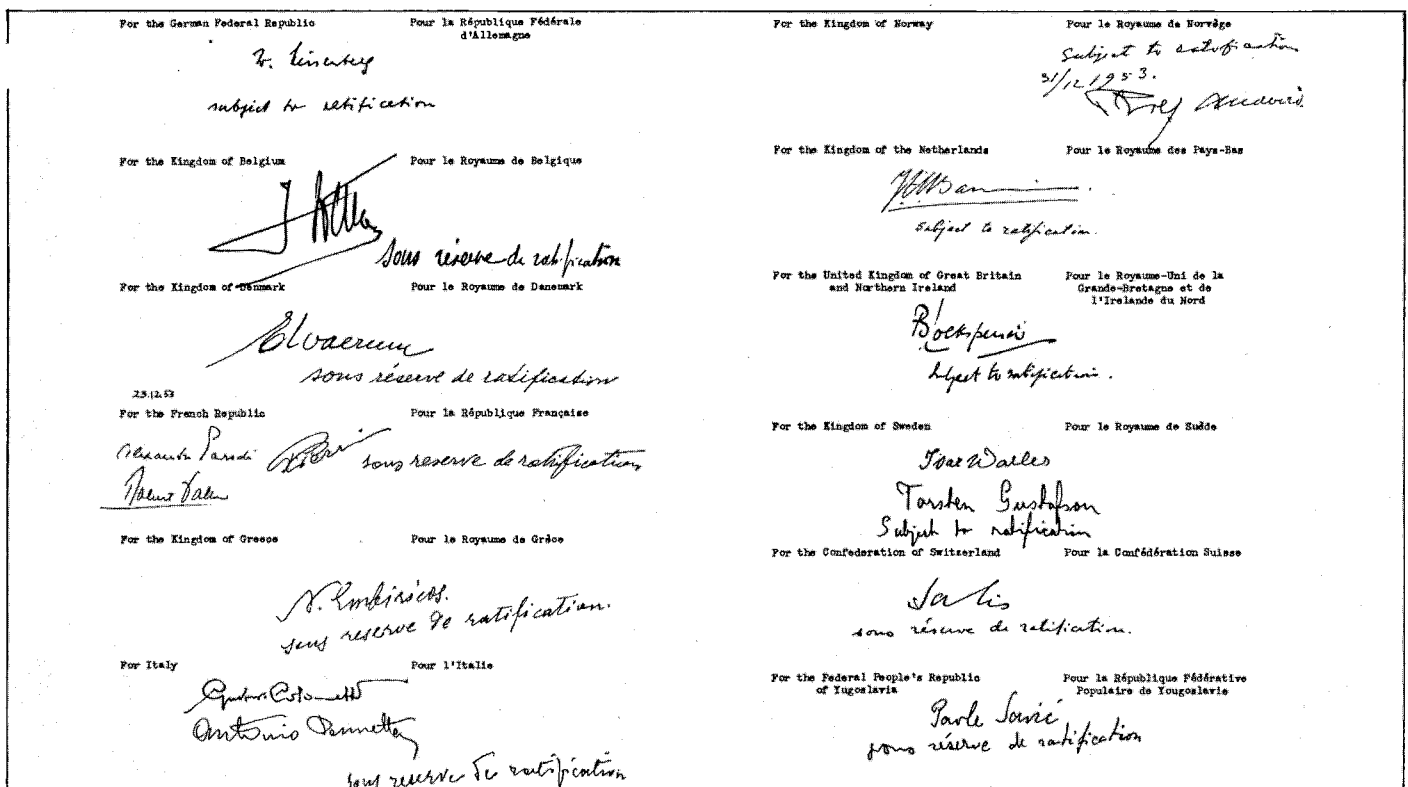 For the German Federal Republic
Pour la République Fédérale
d'Allemagne
W. Heisenberg
subject to ratification
For the Kingdom of Belgium
Pour le Royaume de Belgique
sous réserve de ratification
For the Kingdom of Denmark
Pour le Royaume de Danemark
sous réserve de ratification
23.12.53
For the French Republic
Pour la République Française
Alexandre Parodi
sous reserve de ratification
Robert
For the Kingdom of Greece
Pour le Royaume de Grèce
N. Embiricos.
sous reserve de ratification.
For Italy
Pour l'Italie
Gustavo Colonnetti
Antonio Pennetta
sous reserve de ratification
For the Kingdom of Norway
Pour le Royaume de Norvège
Subject to ratification
31/12 1953.
For the Kingdom of the Netherlands
Pour le Royaume des Pays-Bas
subject to ratification.
For the United Kingdom of Great Britain
and Northern Ireland
Pour le Royaume-Uni de la
Grande-Bretagne et de
l'Irelande du Nord
Subject to ratification.
For the Kingdom of Sweden
Pour le Royaume de Suède
Ivar Waller
Torsten Gustafson
Subject to ratification
For the Confederation of Switzerland
Pour la Confédération Suisse
Salis
sous réserve de ratification.
For the Federal People's Republic
of Yugoslavia
Pour la République Fédérative
Populaire de Yougoslavie
Pavle Savić
sous réserve de ratification